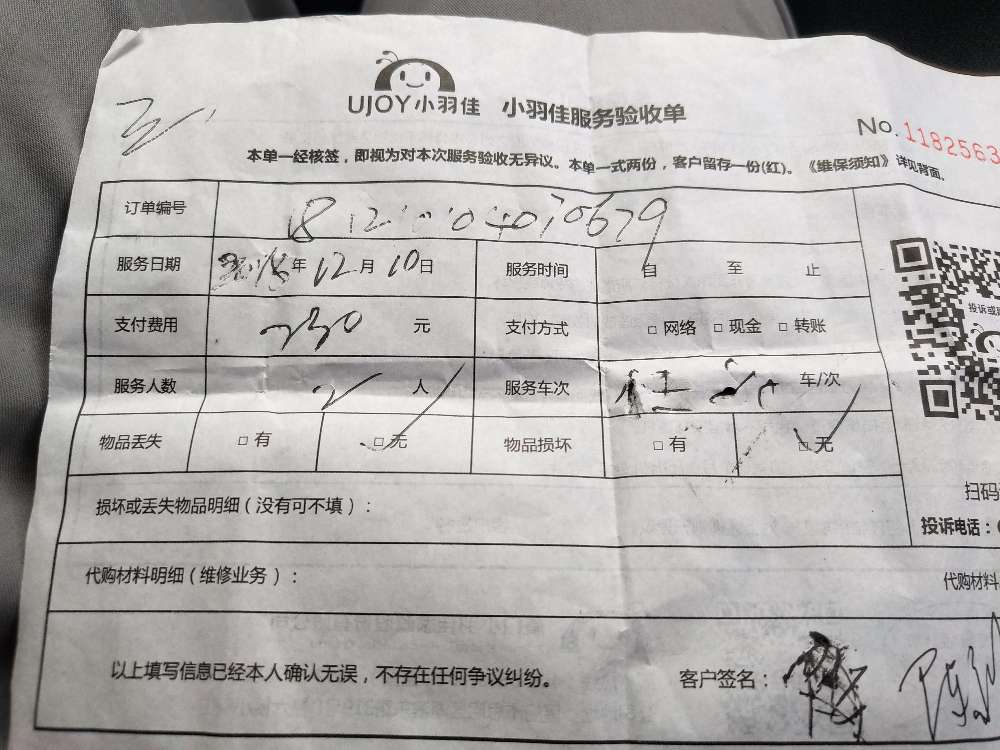 UJOY小羽佳 小羽佳服务验收单
No. 1182563
本单一经核签，即视为对本次服务验收无异议。本单一式两份，客户留存一份(红)。《维保须知》详见背面。
订单编号
服务日期 2018年12月10日 服务时间 自 至 止
支付费用 230 元 支付方式 □ 网络 □ 现金 □ 转账
服务人数 2 人 服务车次 车/次
物品丢失 □ 有 □ 无 物品损坏 □ 有 □ 无
投诉或
损坏或丢失物品明细（没有可不填）：
扫码
投诉电话：
代购材料明细（维修业务）： 代购材料
以上填写信息已经本人确认无误，不存在任何争议纠纷。 客户签名：